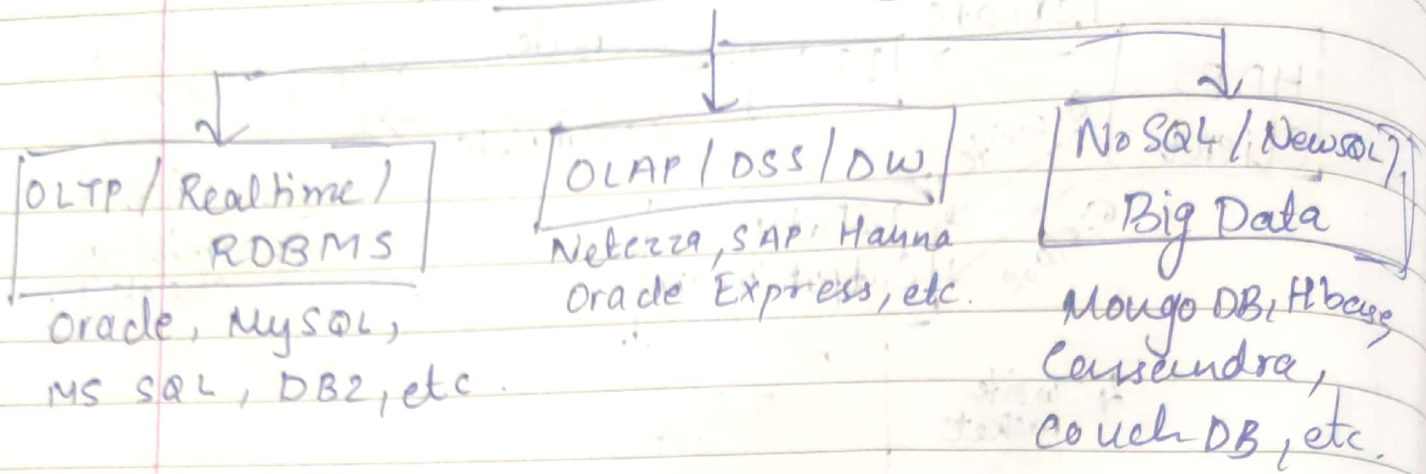 OLTP / Realtime /
RDBMS
Oracle, MySQL,
MS SQL, DB2, etc.
OLAP / DSS / DW
Netezza, SAP Hanna
Oracle Express, etc.
NoSQL / NewSQL /
Big Data
Mongo DB, Hbase,
Cassandra,
Couch DB, etc.